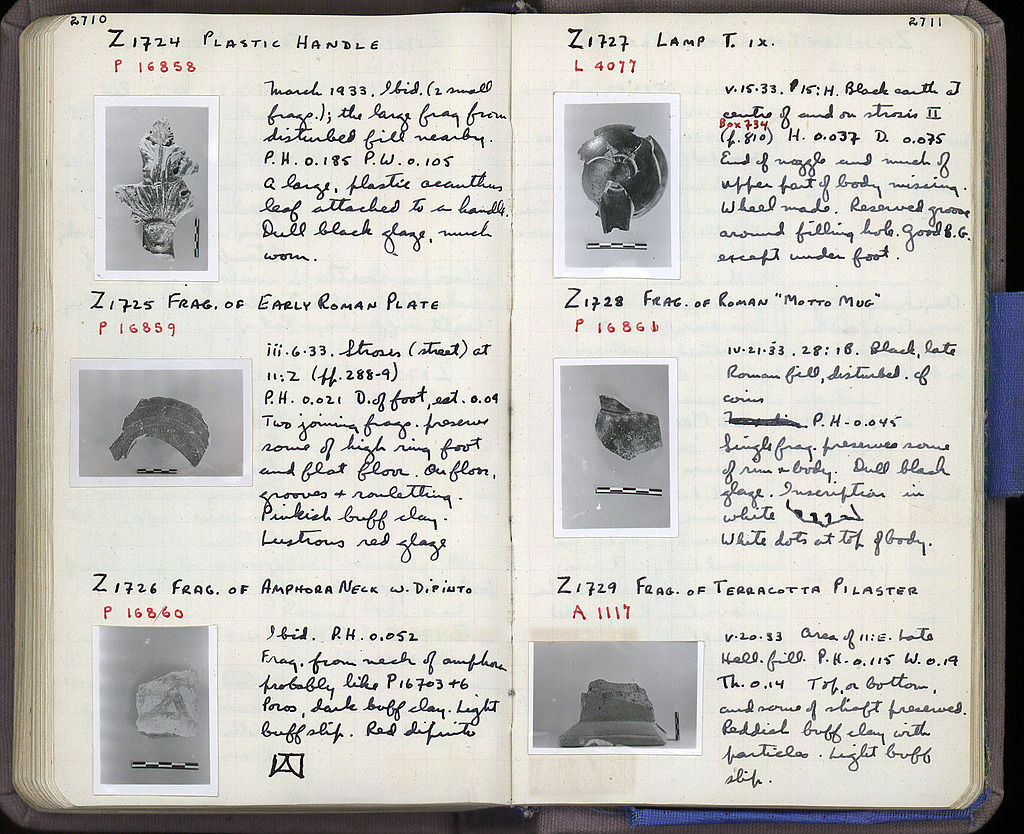 2710
Z1724 PLASTIC HANDLE
P 16858
March 1933. Ibid. (2 small
frags.); the large frag from
disturbed fill nearby.
P.H. 0.185 P.W. 0.105
A large, plastic acanthus
leaf attached to a handle.
Dull black glaze, much
worn.
Z1725 FRAG. OF EARLY ROMAN PLATE
P 16859
iii.6.33. Strosis (street) at
11:Z (pp. 288-9)
P.H. 0.021 D. of foot, est. 0.09
Two joining frags. preserve
some of high ring foot
and flat floor. On floor,
grooves + rouletting.
Pinkish buff clay.
Lustrous red glaze
Z1726 FRAG. OF AMPHORA NECK W. DIPINTO
P 16860
Ibid. P.H. 0.052
Frag. from neck of amphora
probably like P16703 + 6
Poros, dark buff clay. Light
buff slip. Red dipinto
2711
Z1727 LAMP T. IX.
L 4077
v.15.33. 15:H. Black earth at
centre of and on strosis II
Box 734
(p. 810) H. 0.037 D. 0.075
End of nozzle and much of
upper part of body missing.
Wheel made. Reserved groove
around filling hole. Good B.G.
except under foot.
Z1728 FRAG. OF ROMAN "MOTTO MUG"
P 16861
iv.21.33. 28:IB. Black, late
Roman fill, disturbed. cf
coins
P.H. 0.045
Single frag. preserves some
of rim + body. Dull black
glaze. Inscription in
white
White dots at top of body.
Z1729 FRAG. OF TERRACOTTA PILASTER
A 1117
v.20.33 Area of 11:E. Late
Hell. fill. P.H. 0.115 W. 0.19
Th. 0.14 Top, or bottom,
and some of shaft preserved.
Reddish buff clay with
particles. Light buff
slip.